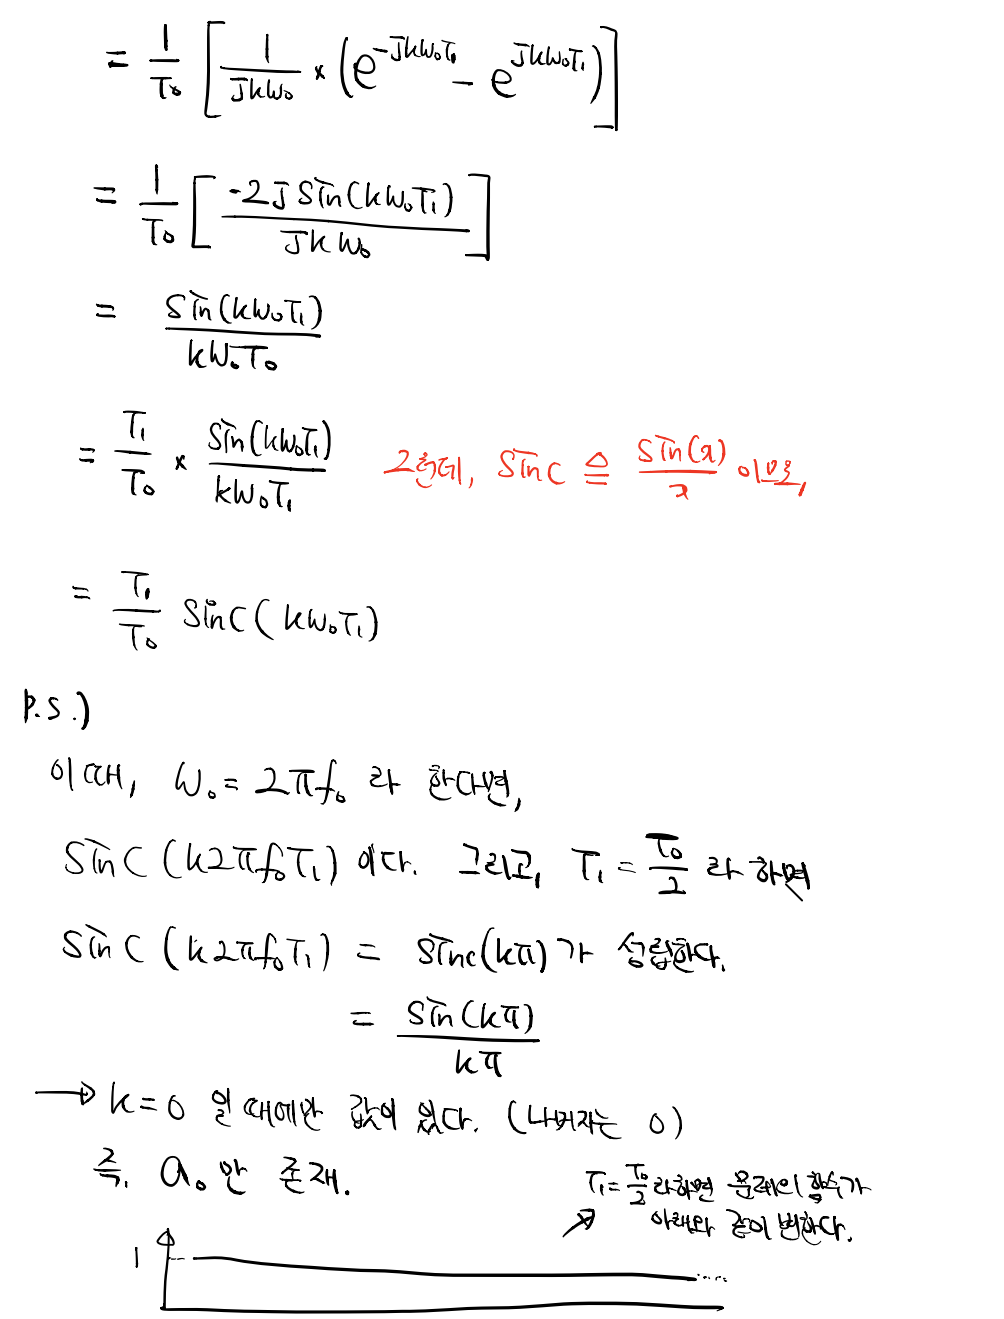 = 1/T₀ [ 1/Jkω₀ × (e^(-Jkω₀T₁) - e^(Jkω₀T₁)) ]
= 1/T₀ [ -2J Sin(kω₀T₁) / Jkω₀ ]
= Sin(kω₀T₁) / kω₀T₀
= T₁/T₀ × Sin(kω₀T₁) / kω₀T₁ 그런데, Sinc ≜ Sin(x)/x 이므로,
= T₁/T₀ Sinc(kω₀T₁)
P.S.)
이때, ω₀ = 2πf₀ 라 한다면,
Sinc (k2πf₀T₁) 이다. 그리고, T₁ = T₀/2 라 하면
Sinc (k2πf₀T₁) = Sinc(kπ)가 성립한다.
= Sin(kπ) / kπ
→ k=0 일 때에만 값이 있다. (나머지는 0)
즉, a₀만 존재.
T₁ = T₀/2 라하면 문제의 함수가
아래와 같이 변한다.
1